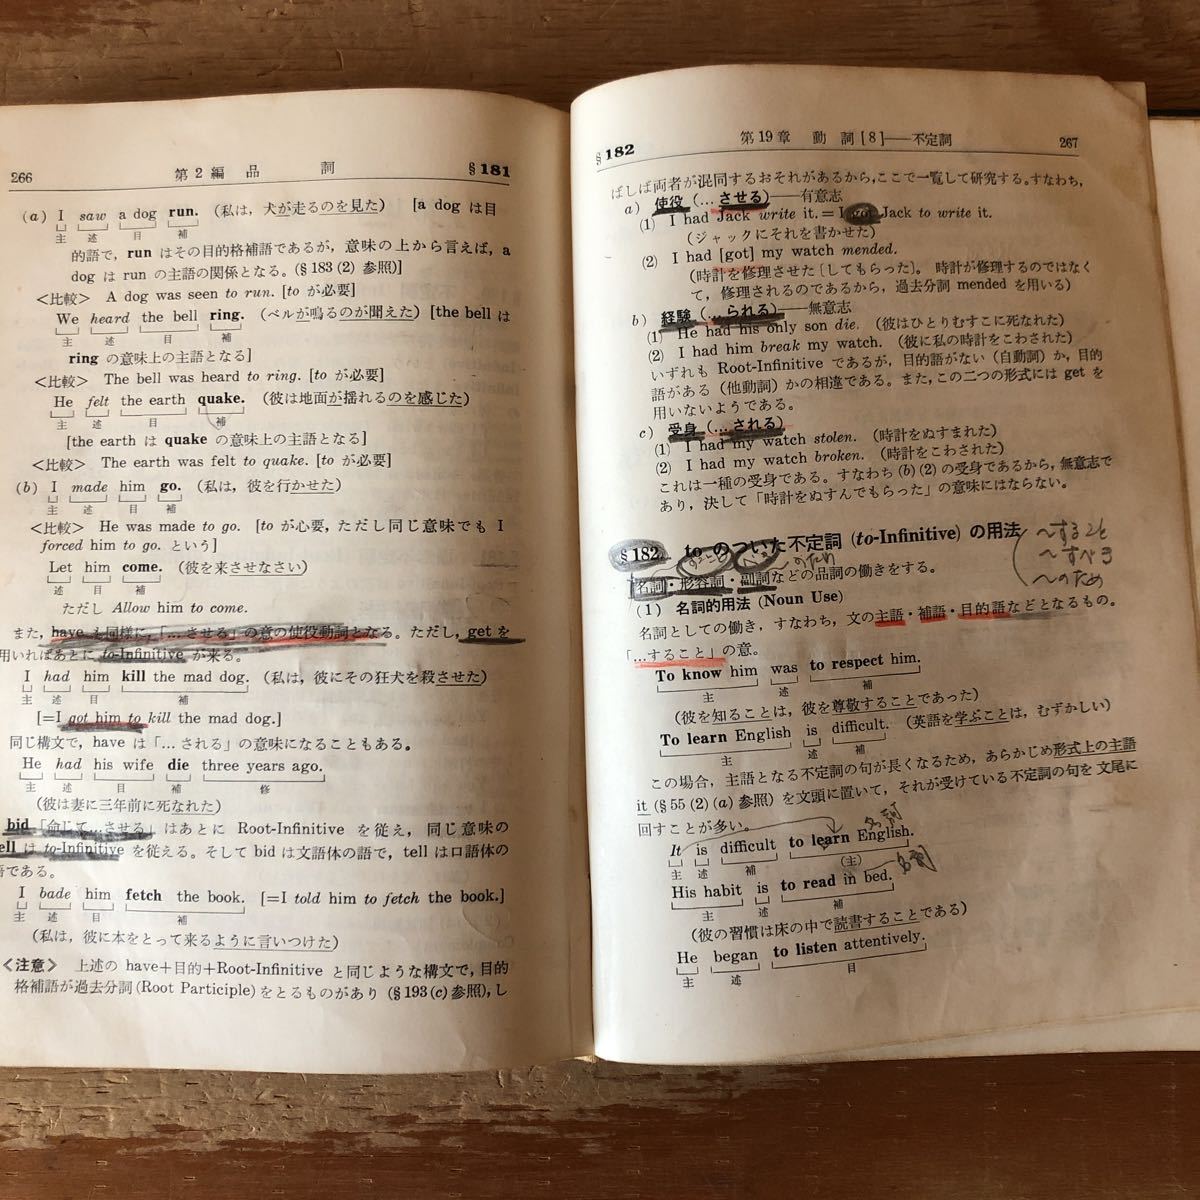 266 第2編 品 詞 §181
(a) I saw a dog run. (私は，犬が走るのを見た) [a dog は目
主 述 目 補
的語で，run はその目的格補語であるが，意味の上から言えば，a
dog は run の主語の関係となる。(§183 (2) 参照)]
〈比較〉 A dog was seen to run. [to が必要]
We heard the bell ring. (ベルが鳴るのが聞えた) [the bell は
主 述 目 補
ring の意味上の主語となる]
〈比較〉 The bell was heard to ring. [to が必要]
He felt the earth quake. (彼は地面が揺れるのを感じた)
主 述 目 補
[the earth は quake の意味上の主語となる]
〈比較〉 The earth was felt to quake. [to が必要]
(b) I made him go. (私は，彼を行かせた)
主 述 目 補
〈比較〉 He was made to go. [to が心要，ただし同じ意味でも I
forced him to go. という]
Let him come. (彼を来させなさい)
述 目 補
ただし Allow him to come.
また，have と同様に，「…させる」の意の使役動詞となる。ただし，get を
用いればあとに to-Infinitive が来る。
I had him kill the mad dog. (私は，彼にその狂犬を殺させた)
主 述 目 補
[=I got him to kill the mad dog.]
同じ構文で，have は「…される」の意味になることもある。
He had his wife die three years ago.
主 述 目 補 修
(彼は妻に三年前に死なれた)
bid「命じて…させる」はあとに Root-Infinitive を従え，同じ意味の
tell は to-Infinitive を従える。そして bid は文語体の語で，tell は口語体の
語である。
I bade him fetch the book. [=I told him to fetch the book.]
主 述 目 補
(私は，彼に本をとって来るように言いつけた)
〈注意〉 上述の have+目的+Root-Infinitive と同じような構文で，目的
格補語が過去分詞(Root Participle)をとるものがあり (§193(c)参照)，し
§182 第19章 動 詞 [8]——不定詞 267
ばしば両者が混同するおそれがあるから，ここで一覧して研究する。すなわち，
a) 使役 (…させる)——有意志
(1) I had Jack write it. = I got Jack to write it.
(ジャックにそれを書かせた)
(2) I had [got] my watch mended.
(時計を修理させた [してもらった]。 時計が修理するのではなく
て，修理されるのであるから，過去分詞 mended を用いる)
b) 経験 (…られる)——無意志
(1) He had his only son die. (彼はひとりむすこに死なれた)
(2) I had him break my watch. (彼に私の時計をこわされた)
いずれも Root-Infinitive であるが，目的語がない (自動詞) か，目的
語がある (他動詞) かの相違である。また，この二つの形式には get を
用いないようである。
c) 受身 (…される)
(1) I had my watch stolen. (時計をぬすまれた)
(2) I had my watch broken. (時計をこわされた)
これは一種の受身である。すなわち (b) (2) の受身であるから，無意志で
あり，決して「時計をぬすんでもらった」の意味にはならない。
§182. to のついた不定詞 (to-Infinitive) の用法
〜すること
〜すべき
〜のため
名詞・形容詞・副詞などの品詞の働きをする。
(1) 名詞的用法 (Noun Use)
名詞としての働き，すなわち，文の主語・補語・目的語などとなるもの。
「…すること」の意。
To know him was to respect him.
主 述 補
(彼を知ることは，彼を尊敬することであった)
To learn English is difficult. (英語を学ぶことは，むずかしい)
主 述 補
この場合，主語となる不定詞の句が長くなるため，あらかじめ形式上の主語
it (§55 (2) (a) 参照) を文頭に置いて，それが受けている不定詞の句を 文尾に
回すことが多い。
名詞
It is difficult to learn English.
主 述 補 (主)
名詞
His habit is to read in bed.
主 述 補
(彼の習慣は床の中で読書することである)
He began to listen attentively.
主 述 目